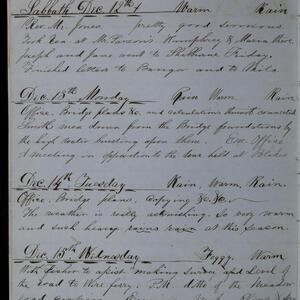 Sabbath Dec. 12th Warm Rain
Rev. Mr. Jones. pretty good sermons
Took Tea at Mr. Parsons's Humphrey & Maria there
Joseph and Jane went to Shelburne Friday.
Finished letters to Bangor and to Phila.
Dec. 13th Monday Rain Warm Rain
Office. Bridge plans &c. and calculations thereto connected
Smith's men down from the Bridge foundations by
the high water bursting upon them. Eve. Office
A meeting in opposition to the one held at Blakes
Dec. 14th Tuesday Rain, Warm, Rain.
Office. Bridge plans. Copying &c &c.
The weather is really astonishing. So very warm
and such heavy rains at this season.
Dec. 15th Wednesday Foggy. Warm
With Fisher to assist making Survey and Level of
the road to the ferry. P.M. ditto of the meadow